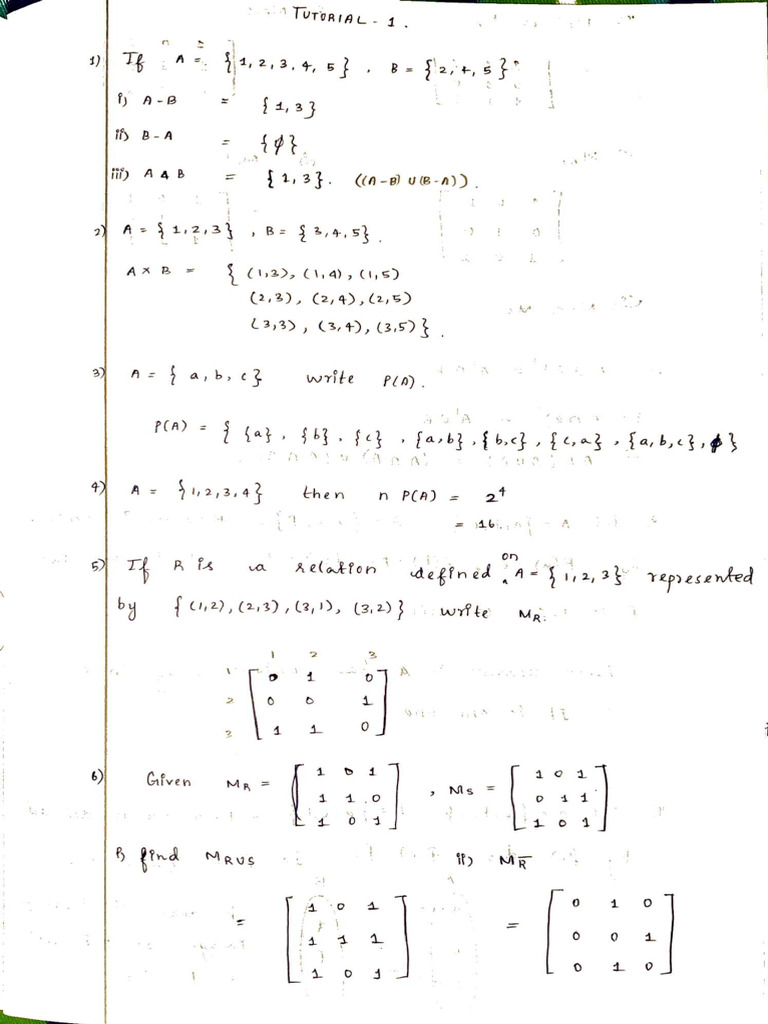 TUTORIAL - 1.
1) If A = {1, 2, 3, 4, 5}, B = {2, 4, 5}
i) A - B = {1, 3}
ii) B - A = {ϕ}
iii) A Δ B = {1, 3}. ((A-B) ∪ (B-A)).
2) A = {1, 2, 3}, B = {3, 4, 5}.
A × B = { (1,3), (1,4), (1,5)
(2,3), (2,4), (2,5)
(3,3), (3,4), (3,5)}.
3) A = {a, b, c} write P(A).
P(A) = { {a}, {b}, {c}, {a,b}, {b,c}, {c,a}, {a,b,c}, ϕ}
4) A = {1, 2, 3, 4} then n P(A) = 2⁴
= 16.
5) If R is a relation defined on A = {1, 2, 3} represented
by {(1,2), (2,3), (3,1), (3,2)} write MR.
1 2 3
1 0 1 0
2 0 0 1
3 1 1 0
6) Given MR = [1 0 1 , MS = [1 0 1
1 1 0 0 1 1
1 0 1] 1 0 1]
i) find MRUS ii) MR̅
= [1 0 1 = [0 1 0
1 1 1 0 0 1
1 0 1] 0 1 0]